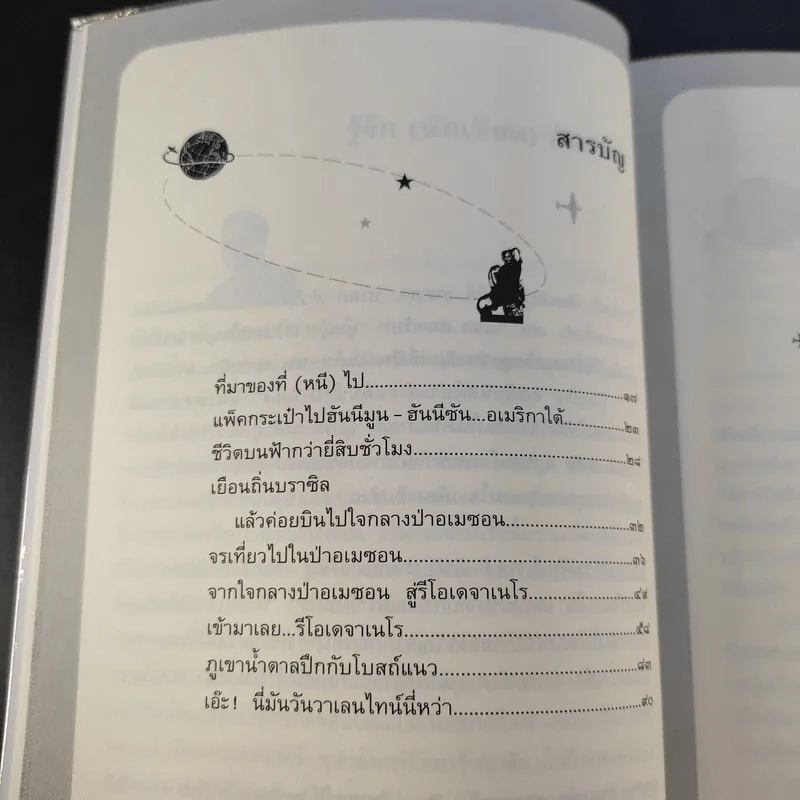 สารบัญ
ที่มาของที่ (หนี) ไป................................................๑๗
แพ็คกระเป๋าไปฮันนีมูน - ฮันนีซัน...อเมริกาใต้.............๒๓
ชีวิตบนฟ้ากว่ายี่สิบชั่วโมง..........................................๒๘
เยือนถิ่นบราซิล
แล้วค่อยบินไปใจกลางป่าอเมซอน..........................๓๒
จรเที่ยวไปในป่าอเมซอน.............................................๓๖
จากใจกลางป่าอเมซอน สู่รีโอเดจาเนโร.....................๔๙
เข้ามาเลย...รีโอเดจาเนโร.............................................๕๘
ภูเขาน้ำตาลปึกกับโบสถ์แนว.......................................๘๓
เอ๊ะ! นี่มันวันวาเลนไทน์นี่หว่า....................................๙๐